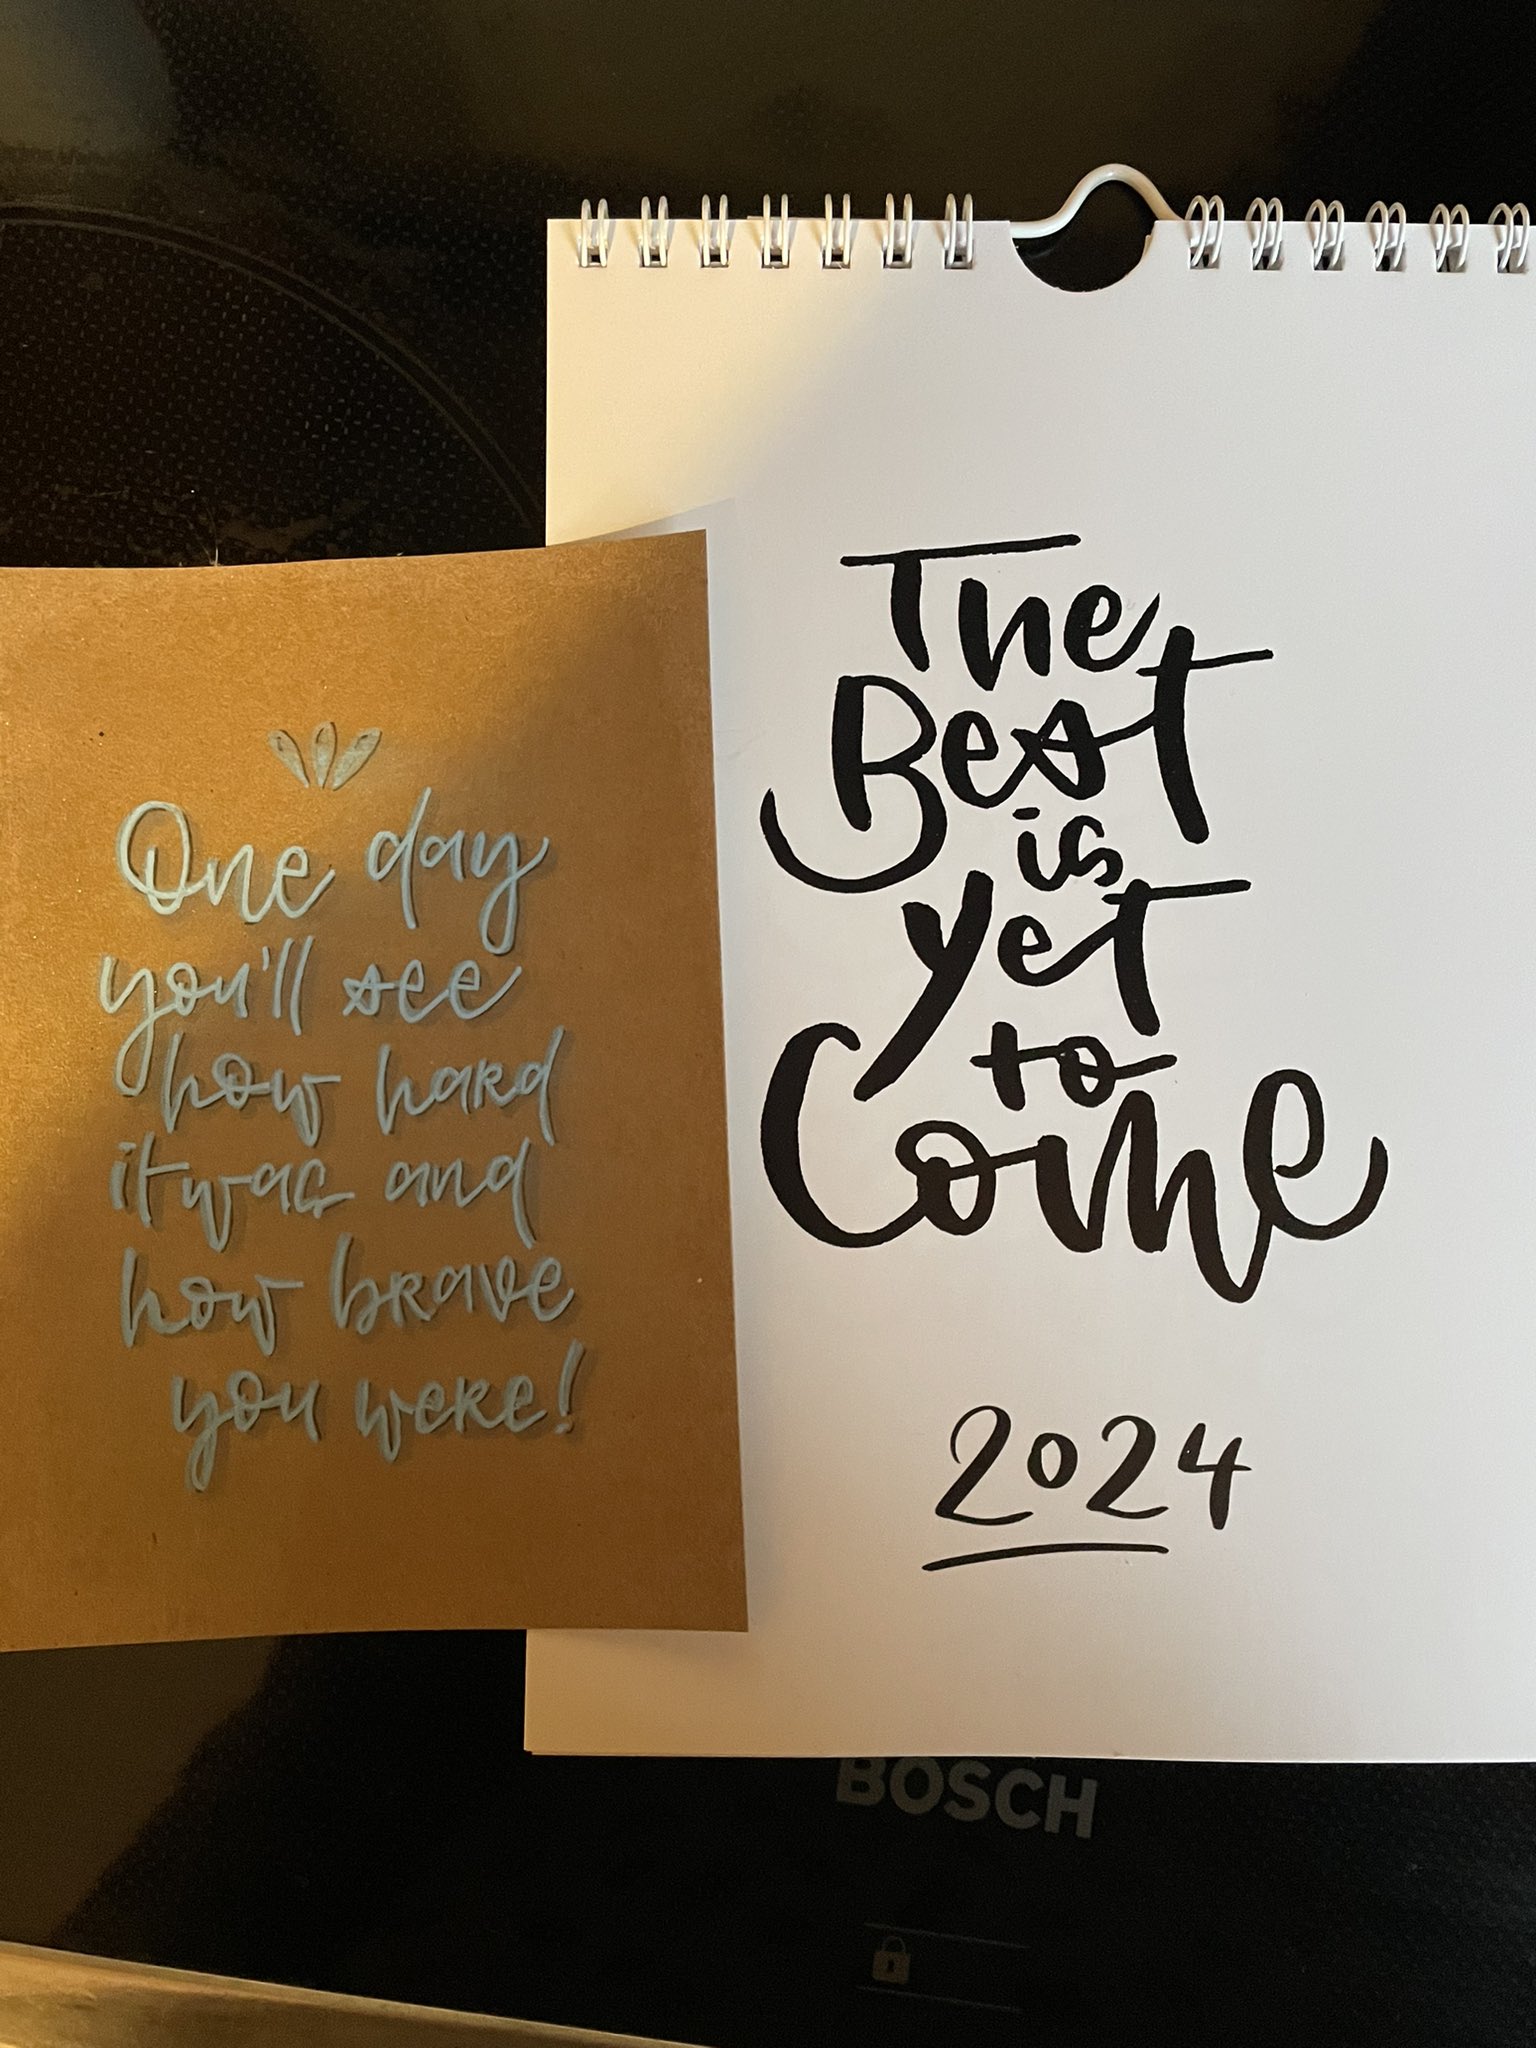 One day
you'll see
how hard
it was and
how brave
you were!
The
Best
is
yet
to
Come
2024
BOSCH